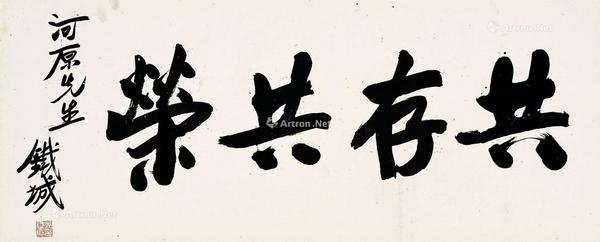 共存共榮
河原先生
鐵城
Artron.Net
Artron.Net
Artron.Net